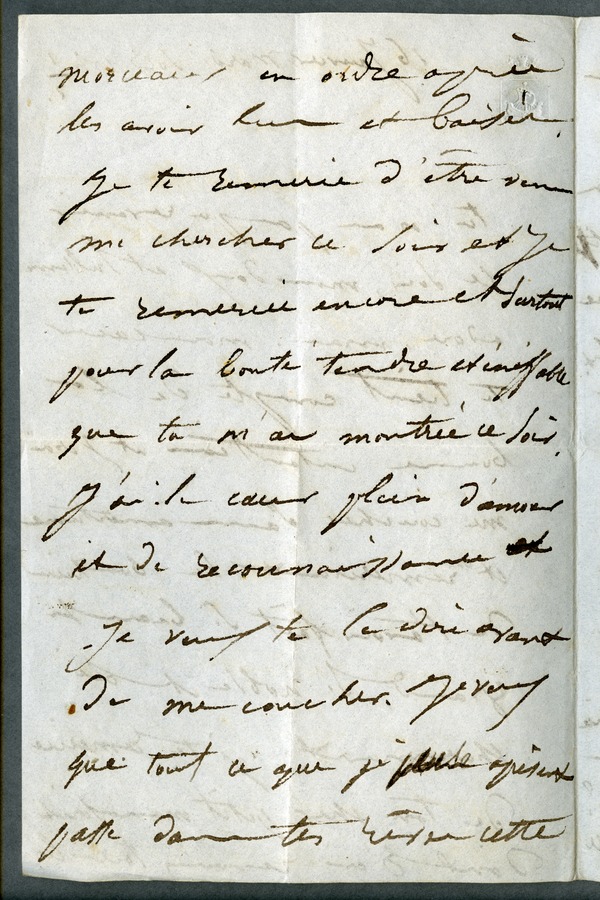 morceaux en ordre après
les avoir lus et baisés.
Je te remercie d'être venu
me chercher ce soir et je
te remercie encore et surtout
pour la bonté tendre et ineffable
que tu m'as montrée ce soir.
J'ai le cœur plein d'amour
et de reconnaissance et
je veux te le dire avant
de me coucher. Je veux
que tout ce que je à présent
passe dans tes rêves cette